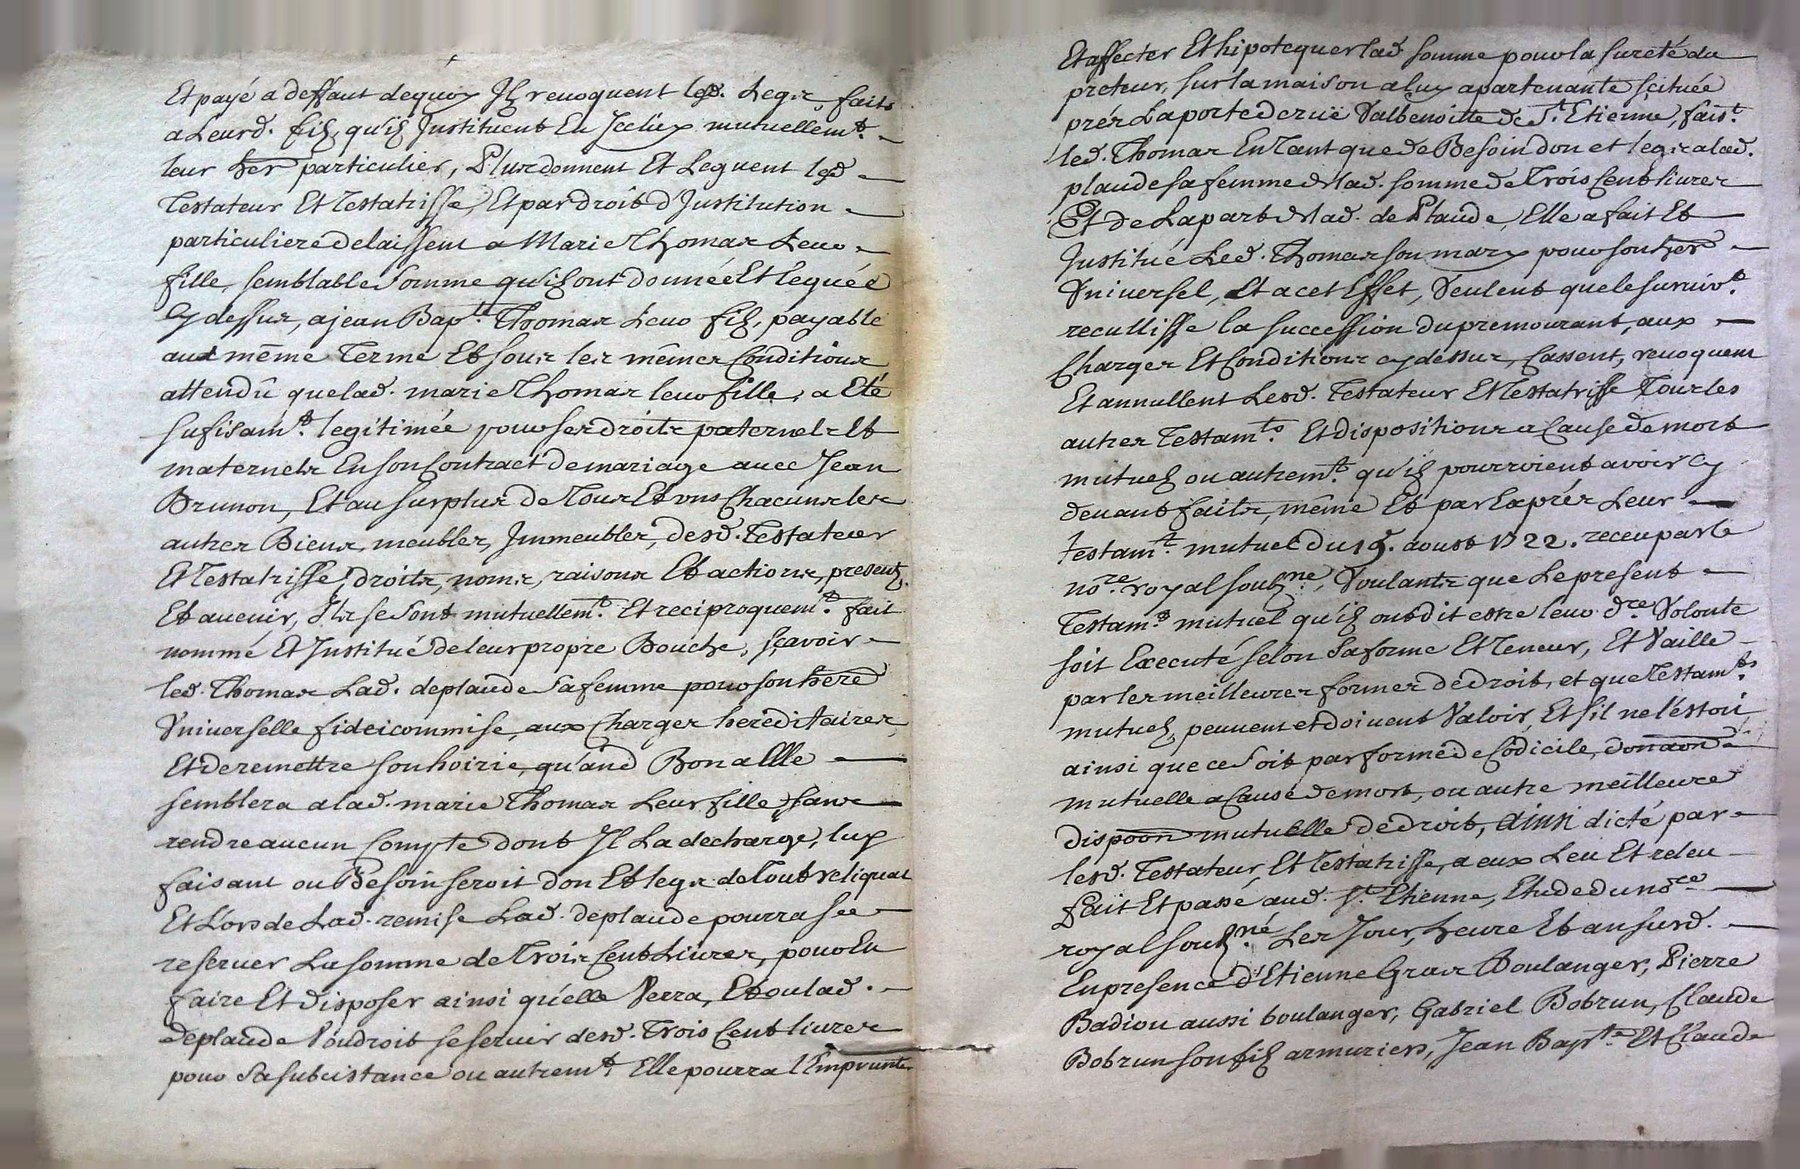 Et payé a deffaut dequoy Ilz revoquent lesd. Legs, faits
a Leursd. filz, qu'ilz Instituent En Iceluy mutuellemt.
leur her particulier, Plus donnent Et Leguent lesd
Testateur Et Testatrisse, Et par droit d'Institution
particuliere delaissent a Marie Thomas Leur
fille, semblable Somme qu'ilz ont donnée Et leguée
Cy dessus, a jean Bapte. Thomas Leur filz, payable
aux même Terme Et Sous les mêmes Conditions
attendû que lad. marie Thomas leur fille, a Eté
sufisamt. legitimée pour ses droits paternels Et
maternels En son Contract de mariage avec Jean
Brunon, Et au surplus de Tous Et uns Chacuns les
autres Biens, meubles, Immeubles, desd. Testateur
Et Testatrisse, droits, noms, raisons Et actions, presentz
Et avenir, Ils se sont mutuellemt. Et reciproquemt. fait
nommé Et Institué de leur propre Bouche, sçavoir
led. Thomas Lad. deplaude Sa femme pour son hered
Universelle fideicommise, aux Charges hereditaires,
Et de remettre son hoirie, qu'and Bon a Elle
semblera a lad. marie Thomas Leur fille, sans
rendre aucun Compte dont Il La decharge, luy
faisant ou Besoin seroit don Et legs de Tout reliquat
Et Lors de Lad. remise Lad. deplaude pourra se
reserver La somme de Trois Cent Livres, pour En
faire Et disposer ainsi qu'elle Verra, Et ou lad.
deplaude Voudroit se servir desd. Trois Cent livres
pour Sa subcistance ou autremt. Elle pourra l'Emprunter
Et affecter Et hipotequer lad somme pour la sureté du
preteur, sur la maison a luy apartenante scituée
prés La porte de ruë Valbenoitte de St. Etienne, faist.
led. Thomas En Tant que de Besoin don et legs a lad.
plaude sa femme de lad. somme de Trois Cent livres
Et de La part de lad. de Plaude, Elle a fait Et
Institué Led. Thomas son mary pour son her
Universel, Et a cet Effet, Veulent que le survivt.
recullisse la succession du premourant, aux
Charges Et Conditions cy dessus, Cassent, revoquent
Et annullent Lesd. Testateur Et Testatrisse Tous les
autres Testamts. Et dispositions a Cause de mort
mutuelz ou autremt. qu'ilz pourroient avoir Cy
devant faits, même Et par Exprés Leur
testamt. mutuel du 19. aoust 1722. receu par le
nore. royal soubzne, Voulants que Le present
Testamt. mutuel qu'ilz ont dit estre leur dre. Volonté
soit Executé selon Sa forme Et Teneur, Et Vaille
par les meilleures formes de droit, et que Testamts.
mutuelz, peuvent et doivent Valoir, Et s'il ne l'éstoit
ainsi que ce Soit par forme de Codicile, donaon
mutuelle a Cause de mort, ou autre meilleure
dispoon mutuelle de droit, ainsi dicté par
lesd. Testateur, Et Testatrisse, a eux Leu Et releu
fait Et passé aud. St. Etienne, Etude du nore
royal soubzné Les Jour, heure Et an susd.
En presence d'Etienne Gras Boulanger, Pierre
Badiou aussi boulanger, Gabriel Bobrun, Claude
Bobrun son filz armuriers, Jean Bapte. Et Claude